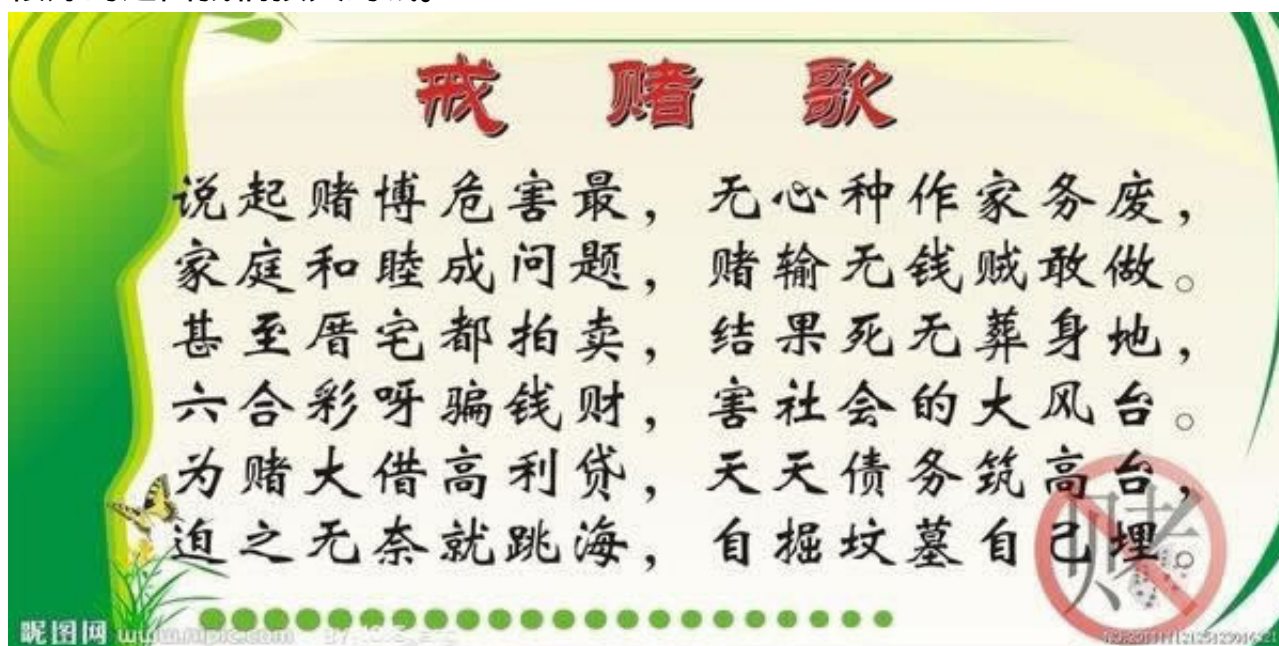 戒 赌 歌
说起赌博危害最，无心种作家务废，
家庭和睦成问题，赌输无钱贼敢做。
甚至厝宅都拍卖，结果死无葬身地，
六合彩呀骗钱财，害社会的大风台。
为赌大借高利贷，天天债务筑高台，
迫之无奈就跳海，自掘坟墓自己埋
赌
昵图网 www.nipic.com